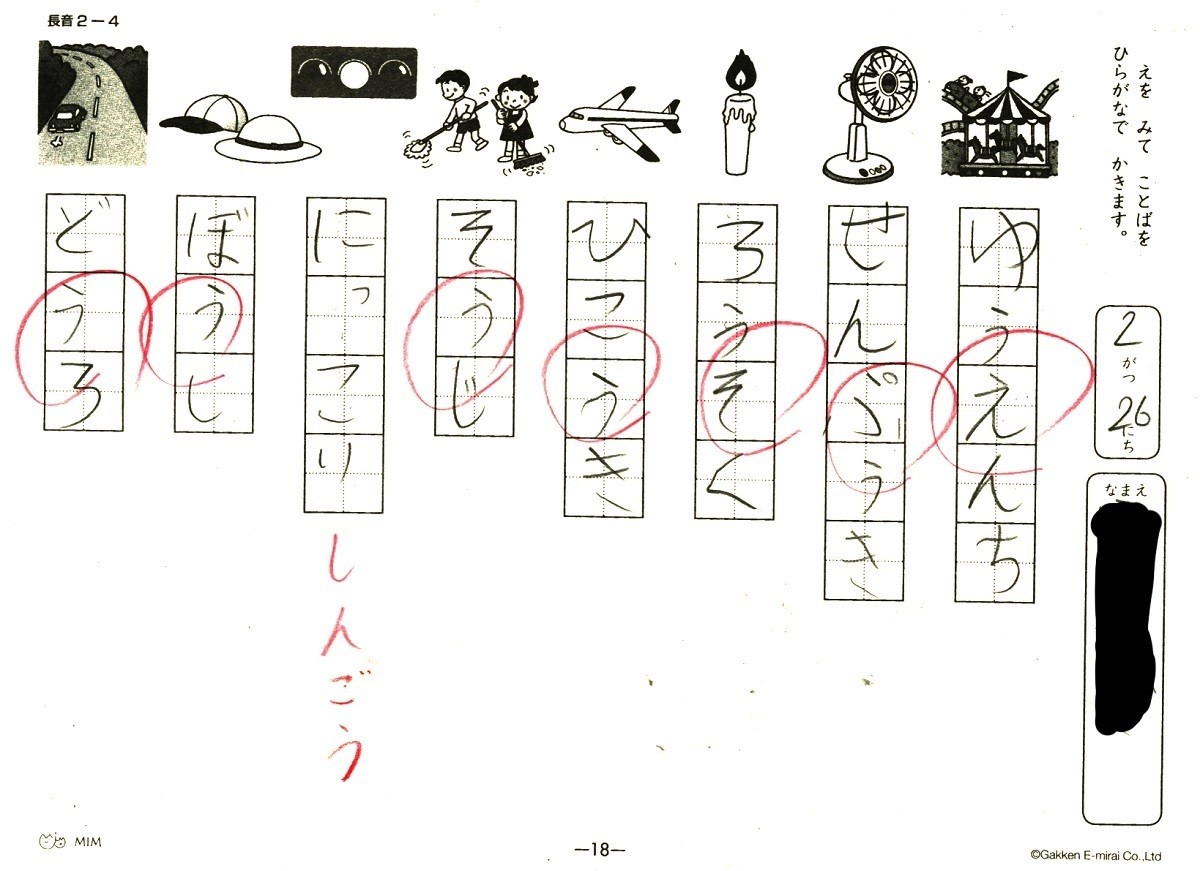 長音2－4
えを みて ことばを
ひらがなで かきます。
2がつ26にち
なまえ
ゆうえんち
せんぷうき
ろうそく
ひこうき
そうじ
にっこり
しんごう
ぼうし
どうろ
MIM
—18—
©Gakken E-mirai Co.,Ltd